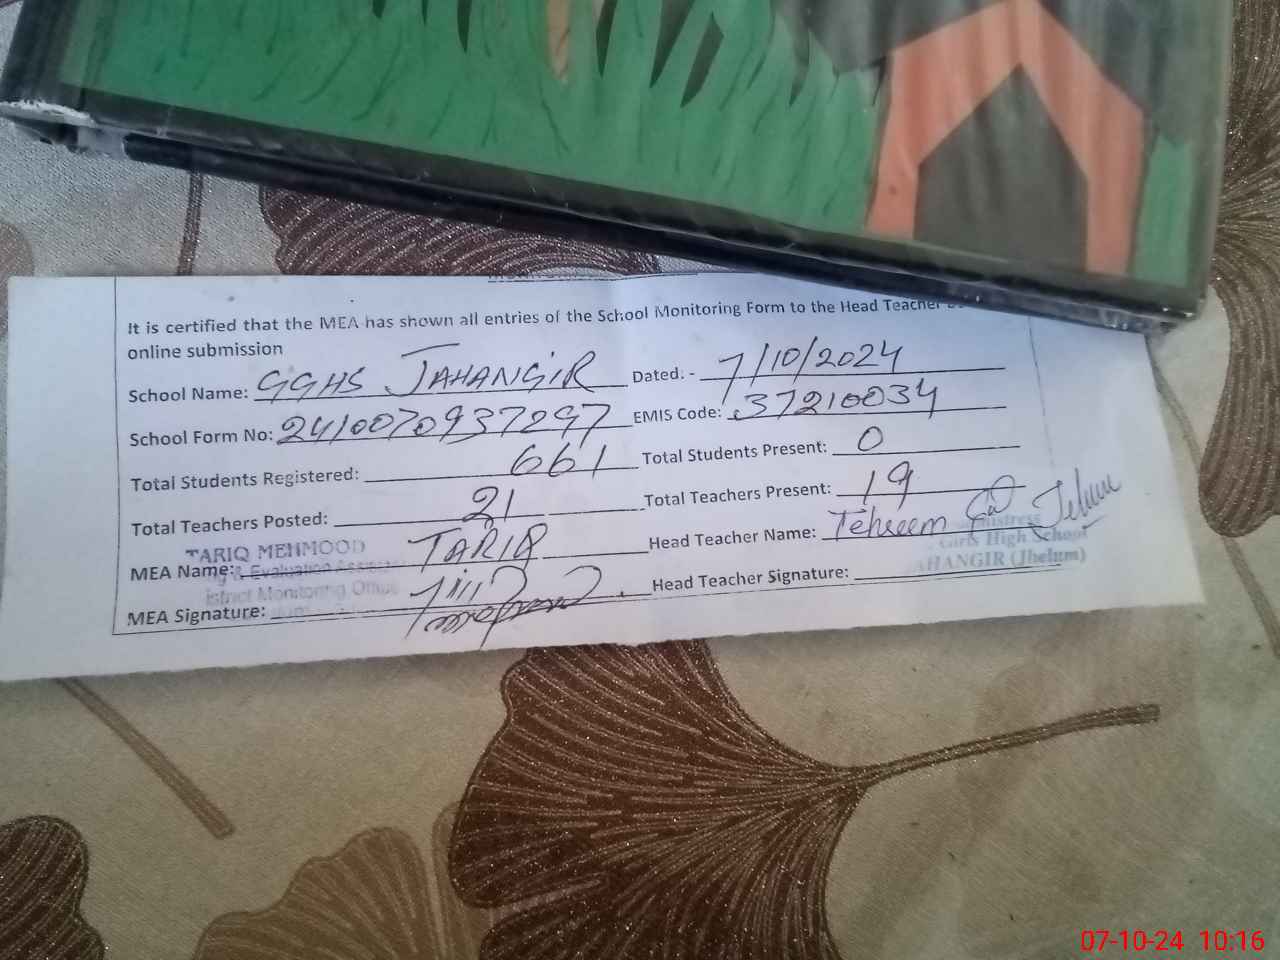 It is certified that the MEA has shown all entries of the School Monitoring Form to the Head Teacher
online submission
School Name: GGHS JAHANGIR Dated: - 7/10/2024
School Form No: 2410070937297 EMIS Code: 37210034
Total Students Registered: 661 Total Students Present: 0
Total Teachers Posted: 21 Total Teachers Present: 19
MEA Name: TARIQ Head Teacher Name: Tehseem
TARIQ MEHMOOD
& Evaluation
District Monitoring Office
Girls High School
JAHANGIR (Jhelum)
MEA Signature: Head Teacher Signature:
07-10-24 10:16